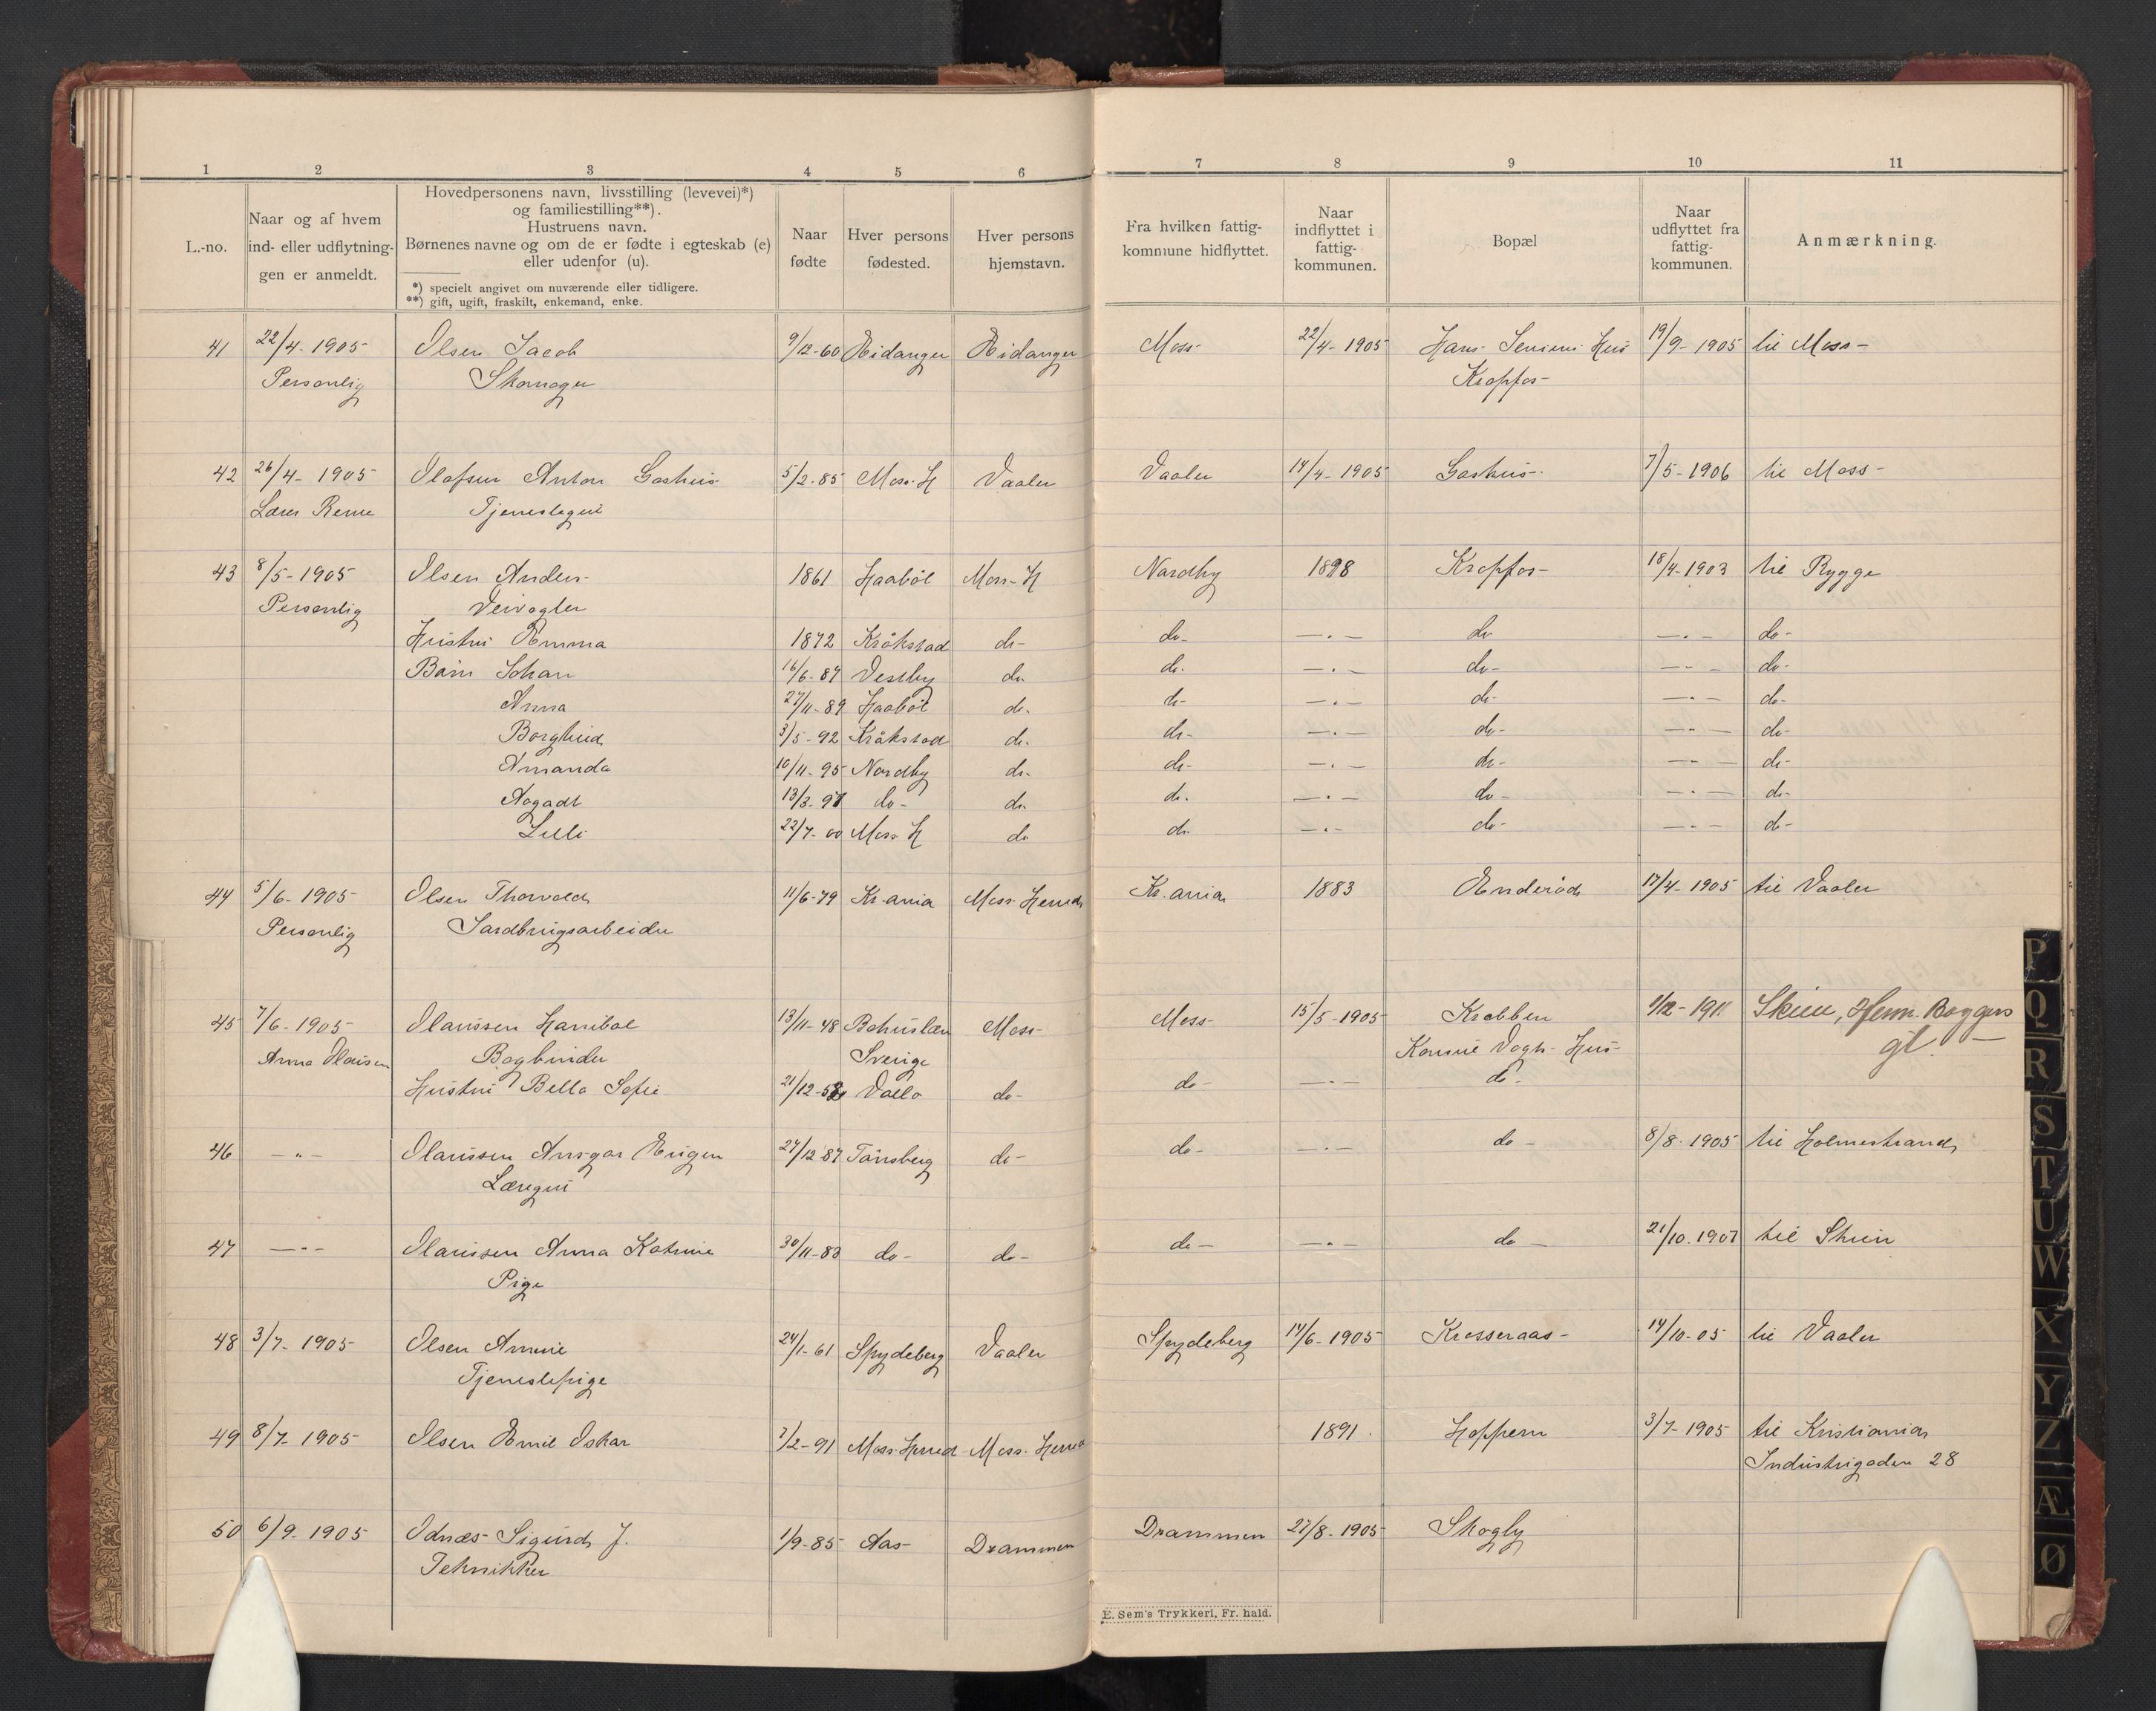 1 2 3 4 5 6 7 8 9 10 11
L.-no.
Naar og af hvem
ind- eller udflytnin-
gen er anmeldt.
Hovedpersonens navn, livsstilling (levevei)*)
og familiestilling**).
Hustruens navn.
Børnenes navne og om de er fødte i egteskab (e)
eller udenfor (u).
*) specielt angivet om nuværende eller tidligere.
**) gift, ugift, fraskilt, enkemand, enke.
Naar
fødte
Hver persons
fødested.
Hver persons
hjemstavn.
Fra hvilken fattig-
kommune hidflyttet.
Naar
indflyttet i
fattig-
kommunen.
Bopæl
Naar
udflyttet fra
fattig-
kommunen.
Anmærkning.
41 22/4-1905 Olsen Jacob 9/12-60 Eidanger Eidanger Moss 22/4-1905 Hans Jensens Hus 19/9-1905 til Moss-
Personlig Skomager Kropfos-
42 26/4-1905 Olafsen Anton Gashus 5/2-85 Moss. H Vaaler Vaaler 14/4-1905 Gashus- 7/5-1906 til Moss-
Tjenestegut
43 8/5-1905 Olsen Anders 1861 Haabøl Moss-H Nordby 1898 Kropfos- 18/4-1903 til Rygge
Personlig Veivogter
Hustru Emma 1872 Kråkstad do- do- —.— do —.— do-
Barn Johan 16/6-87 Vestby do do- —.— do- —.— do-
Anna 27/11-89 Haabøl do- do- —.— do- —.— do-
Borghild 3/5-92 Kråkstad do- do- —.— do- —.— do-
Amanda 10/11-95 Nordby do- do- —.— do- —.— do-
Aagadt 13/3-97 do- do- do- —.— do- —.— do-
Lilli 22/7-00 Moss H do do- —.— do- —.— do-
44 5/6-1905 Olsen Thorvald 11/6-79 Kr.ania Moss Herred Kr.ania 1883 Enderød 17/4-1905 til Vaaler
Personlig Jardbrugsarbeider
45 7/6-1905 Olaussen Hanibal 13/11-48 Bohuslen Moss- Moss- 15/5-1905 Krabben 1/12-1911 Skien, Herm. Baggers
Anna Olausen Bogbinder Sverige Konsul Vogts Hus- gt.
Hustru Bella Sofie 21/12- Vallø do- do- —.— do-
46 —"— Olaussen Ansgar Eugen 27/12 87 Tønsberg do- do- —.— do- 8/8-1905 til Holmestrand
Læregut
47 —"— Olaussen Anna Katrine 30/11-83 do- do- do- —.— do- 21/10.1907 til Skien
Pige
48 3/7-1905 Olsen Annie 24/1-61 Spydeberg Vaaler Spydeberg 14/6-1905 Krosseraas- 14/10-05 til Vaaler
Tjenestepige
49 8/7-1905 Olsen Emil Oskar 7/2-91 Moss Herred Moss. Herred 1891 Hoppern 3/7-1905 til Kristiania
Industrigaden 28
50 6/9-1905 Odnæs Sigurd J. 1/9-85 Aas- Drammen Drammen 27/8-1905 Skogly
Tekniker
E. Sem's Trykkeri, Fr. hald.
P
Q
R
S
T
U
W
X
Y
Z
Æ
Ø